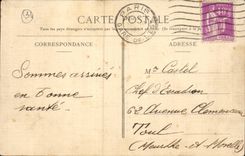 CARTE POSTALE
PARIS
GARE DE L'EST
CORRESPONDANCE
ADRESSE
Sommes arrivés
en bonne
santé
Mr Castel
Chef d'Escadron
62 Avenue Clemenceau
Toul
Meurthe-et-Moselle